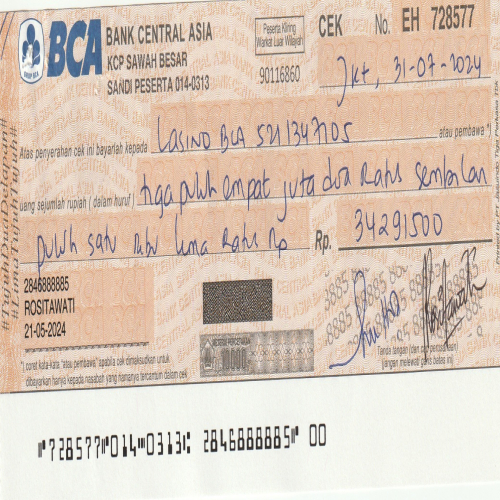 BCA BANK CENTRAL ASIA
KCP SAWAH BESAR
SANDI PESERTA 014-0313
Peserta Kliring
Warkat Luar Wilayah
90116860
CEK No. EH 728577
Jkt, 31-07-2024
Atas penyerahan cek ini bayarlah kepada LASINO BCA 5211347105 atau pembawa *)
uang sejumlah rupiah ( dalam huruf ) tiga puluh empat juta dua Ratus sembilan
puluh satu ribu lima Ratus Rp Rp. 34291500
2846888885
ROSITAWATI
21-05-2024
*) coret kata-kata "atau pembawa" apabila cek dimaksudkan untuk
dibayarkan hanya kepada nasabah yang namanya tercantum dalam cek
Tanda tangan (dan cap perusahaan)
(jangan melewati garis batas ini)
#TujuhDuaDelapan#
728577 014 0313 2846888885 00